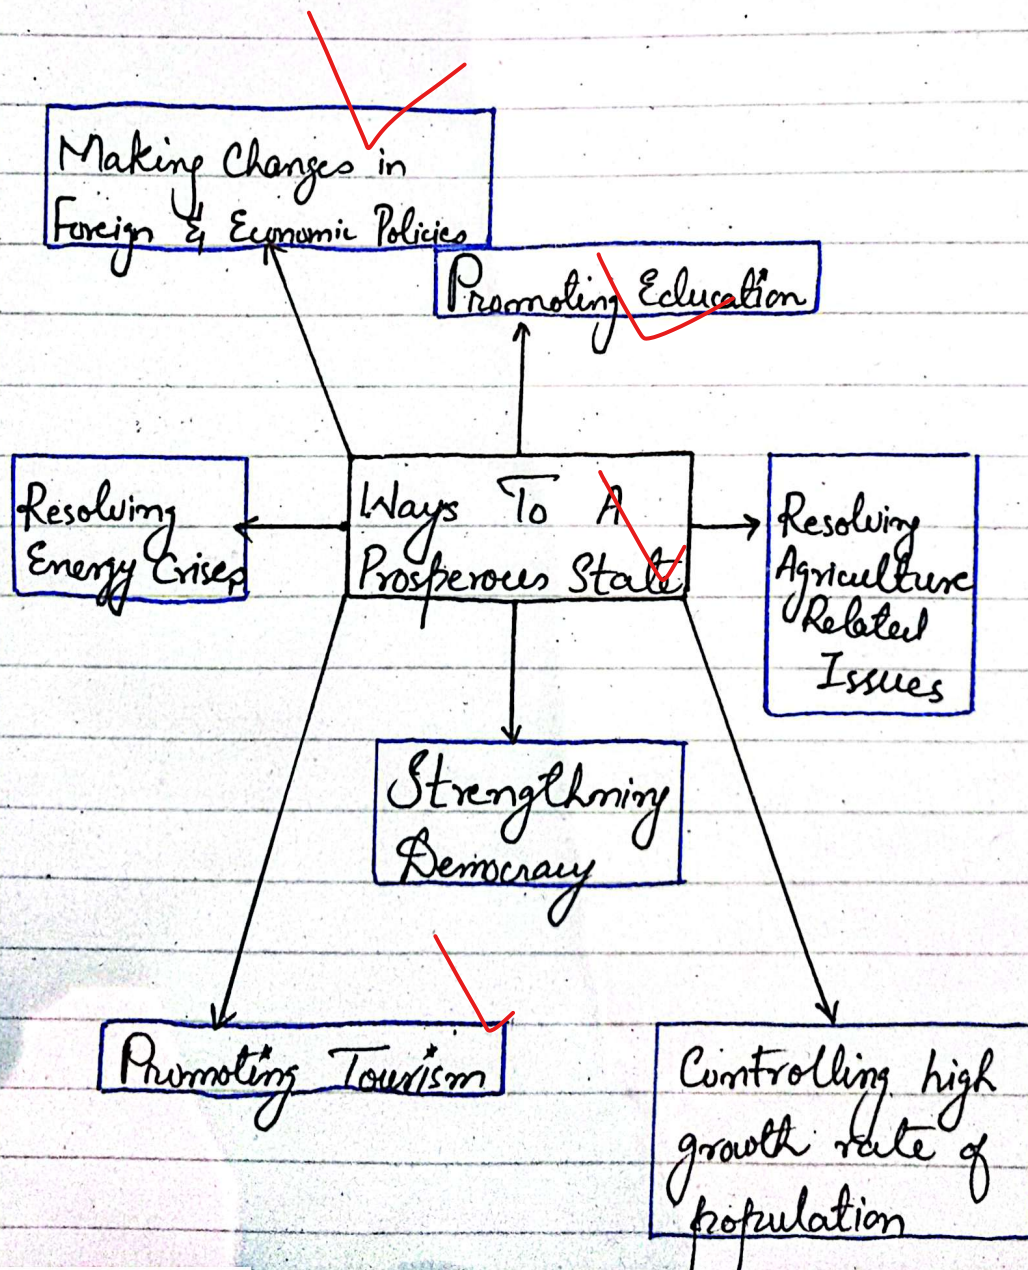 Making Changes in
Foreign & Economic Policies
Promoting Education
Resolving
Energy Crises
Ways To A
Prosperous State
Resolving
Agriculture
Related
Issues
Strengthning
Democracy
Promoting Tourism
Controlling high
growth rate of
population